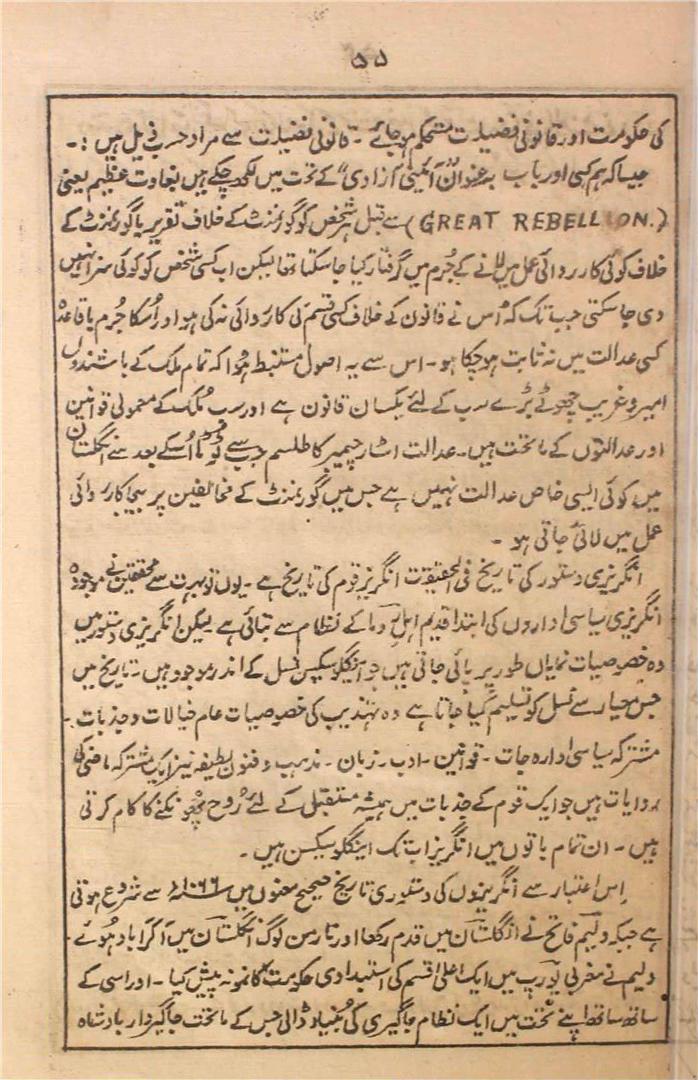 ۵۵
کی حکومت اور قانونی فضیلت مستحکم ہو جائے ۔ قانونی فضیلت سے مراد حسب ذیل ہیں :۔
جیسا کہ ہم کسی اور باب بہ عنوان "آئینی آزادی" کے تحت میں لکھ چکے ہیں بغاوت عظیم یعنی
(GREAT REBELLION.) سے قبل ہر شخص کو گورنمنٹ کے خلاف تقریر یا گورنمنٹ کے
خلاف کوئی کارروائی عمل میں لانے کے جُرم میں گرفتار کیا جا سکتا تھا لیکن اب کسی شخص کو کوئی سزا نہیں
دی جا سکتی جب تک کہ اُس نے قانون کے خلاف کسی قسم کی کاروائی نہ کی ہو اور اُسکا جُرم باقاعدہ
کسی عدالت میں نہ ثابت ہو چکا ہو ۔ اس سے یہ اصول مستنبط ہُوا کہ تمام ملک کے باشندوں
امیر و غریب چھوٹے بڑے سب کے لئے یکسان قانون ہے اور سب مُلک کے معمولی قوانین
اور عدالتوں کے ماتحت ہیں ۔ عدالت اسٹار چیمبر کا طلسم جب سے ٹوٹا اُسکے بعد سے انگلستان
میں کوئی ایسی خاص عدالت نہیں ہے جس میں گورنمنٹ کے مخالفین پر بیجا کاروائی
عمل میں لائی جاتی ہو ۔
انگریزی دستور کی تاریخ فی الحقیقت انگریز قوم کی تاریخ ہے ۔ یوں تو بہت سے محققین نے موجودہ
انگریزی سیاسی اداروں کی ابتدا قدیم اہل روما کے نظام سے بتائی ہے لیکن انگریزی دستور میں
وہ خصوصیات نمایاں طور پر پائی جاتی ہیں جو اینگلو سیکسن نسل کے اندر موجود ہیں ۔ تاریخ میں
جس معیار سے نسل کو تسلیم کیا جاتا ہے وہ تہذیب کی خصوصیات عام خیالات و جذبات ۔
مشترکہ سیاسی ادارہ جات ۔ قوانین ۔ ادب ۔ زبان ۔ مذہب و فنون لطیفہ نیز ایک مشترکہ ماضی کی
روایات ہیں جو ایک قوم کے جذبات میں ہمیشہ مستقبل کے لئے رُوح پھونکنے کا کام کرتی
ہیں ۔ ان تمام باتوں میں انگریز ابتک اینگلو سیکسن ہیں ۔
اِس اعتبار سے انگریزوں کی دستوری تاریخ صحیح معنوں میں ۱۰۶۶ء سے شروع ہوتی
ہے جبکہ ولیم فاتح نے انگلستان میں قدم رکھا اور نارمن لوگ انگلستان میں آکر آباد ہُوئے ۔
ولیم نے مغربی یورپ میں ایک اعلیٰ قسم کی استبدادی حکومت کا نمونہ پیش کیا ۔ اور اسی کے
ساتھ ساتھ اپنے تخت میں ایک نظام جاگیری کی بُنیاد ڈالی جس کے ماتحت جاگیردار بادشاہ